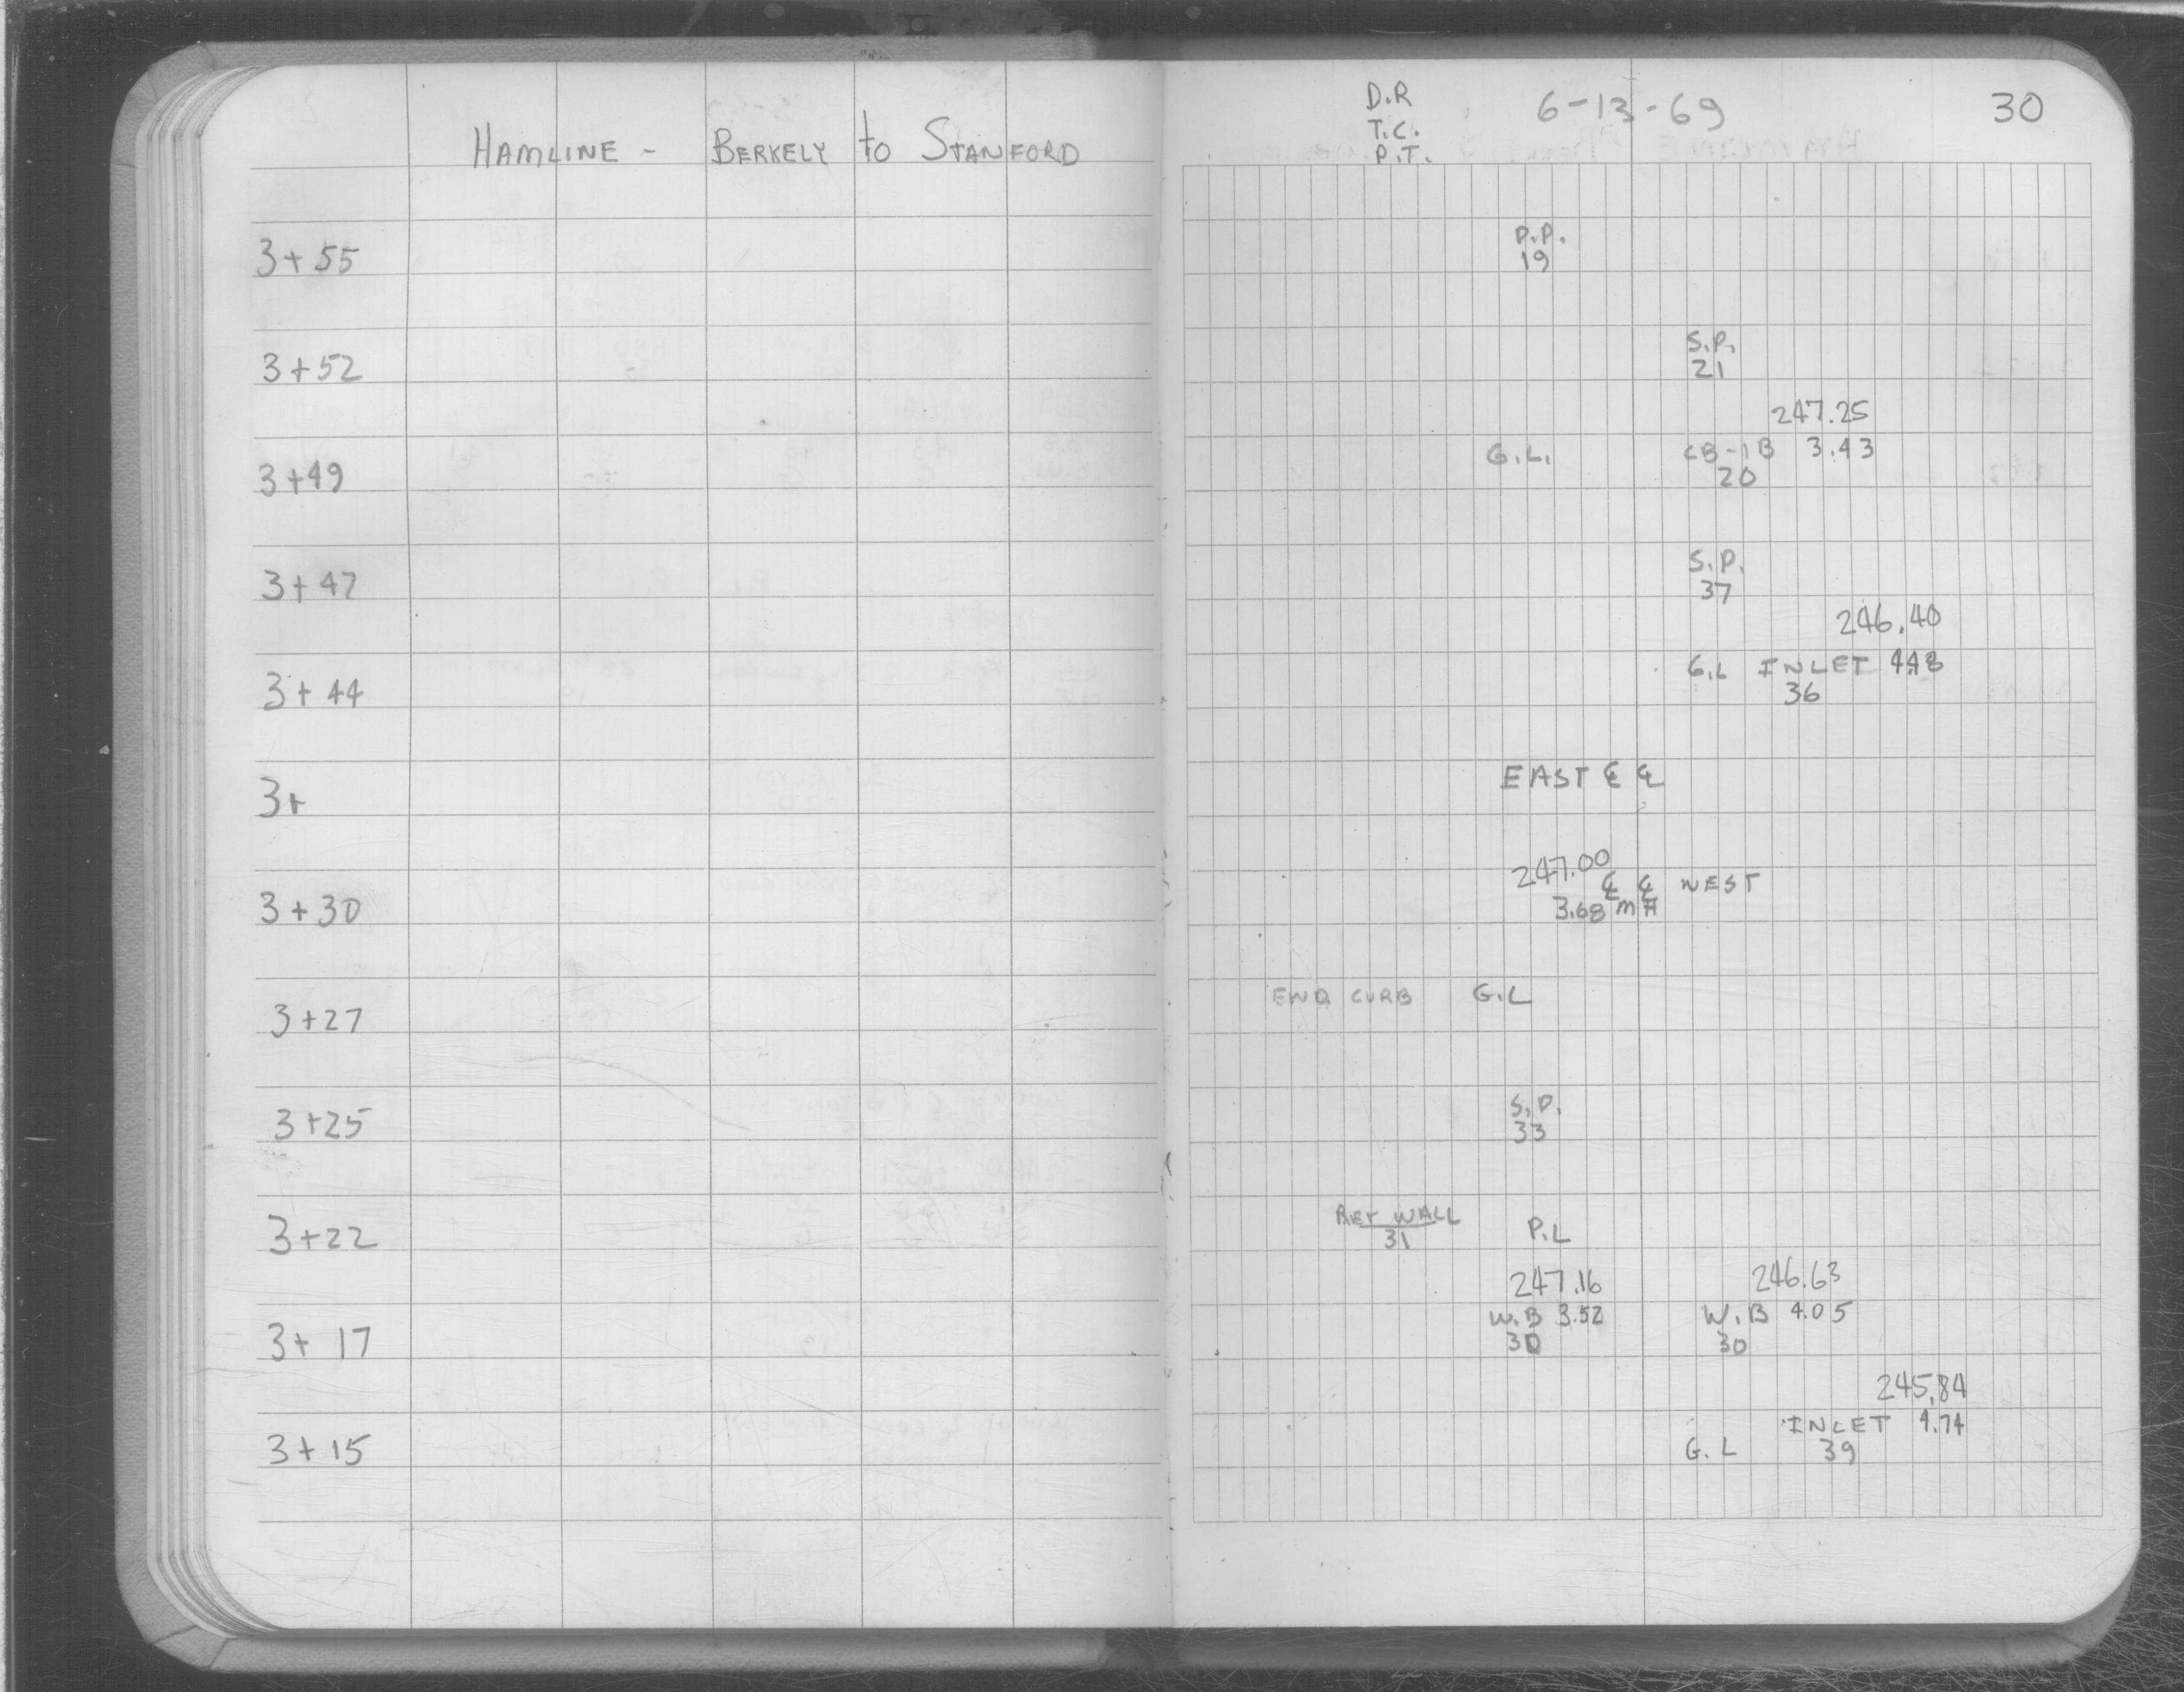 HAMLINE - BERKELY to STANFORD
D.R
T.C.
P.T.
6-13-69
30
3+55
P.P.
19
3+52
S.P.
21
247.25
3+49
G.L. CB-1B 3.43
20
3+47
S.P.
37
246.40
3+44
G.L INLET 4.48
36
3+
EAST ℄ ℄
247.00
3+30
℄ ℄ WEST
3.68 MH
3+27
END CURB G.L
3+25
S.P.
33
3+22
RET WALL P.L
31
247.16 246.63
3+17
W.B 3.52 W.B 4.05
30 30
245.84
3+15
INLET 4.74
G.L 39